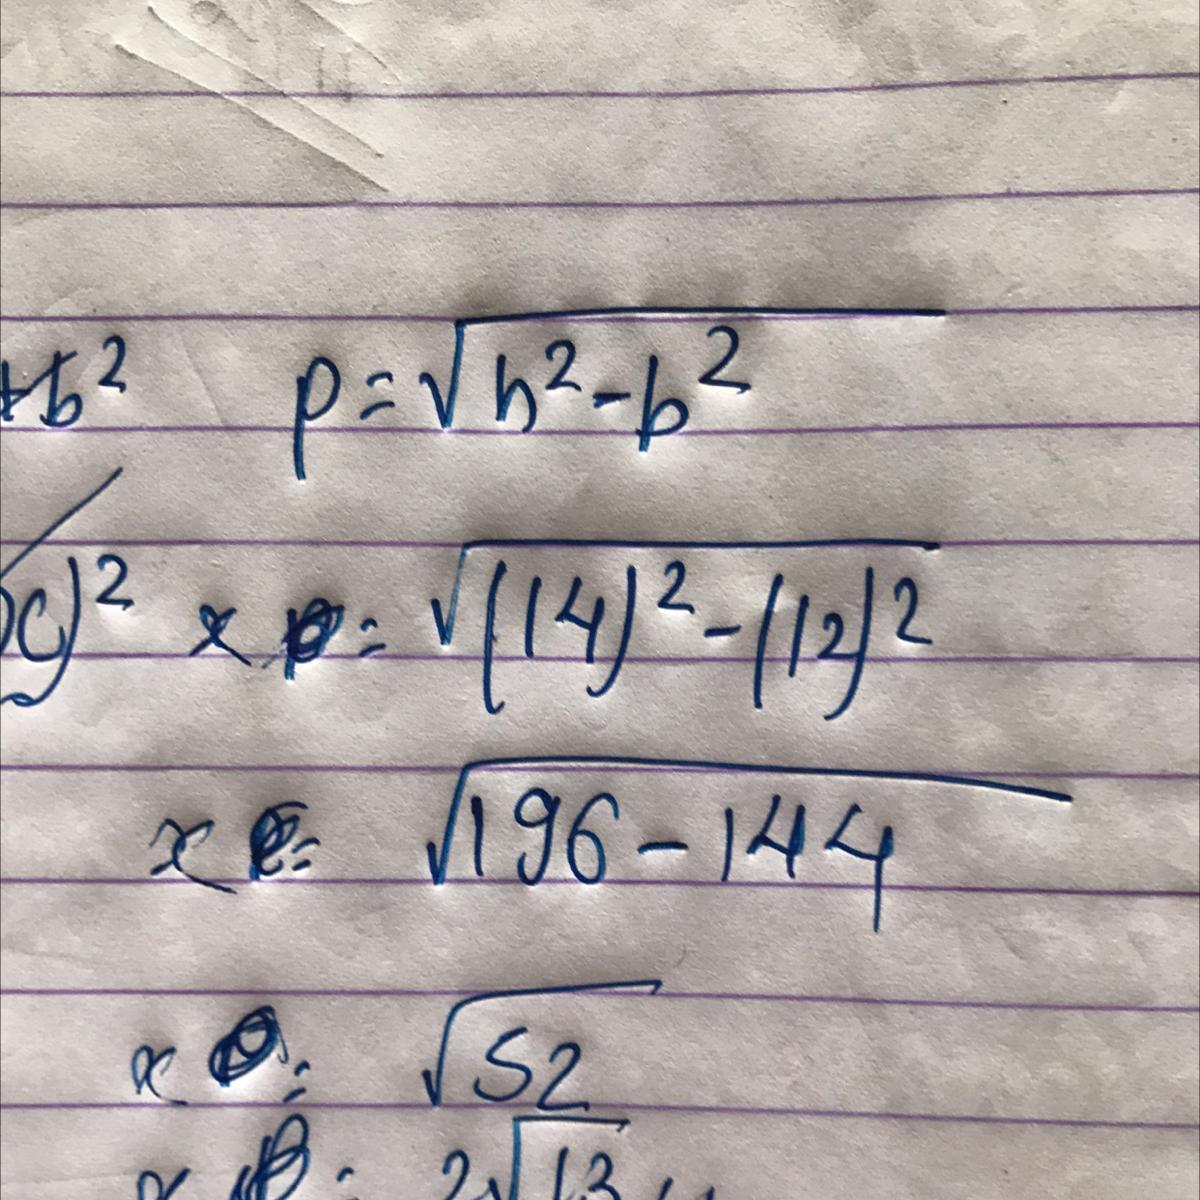 +b² p = √h² - b²
)² x = √(14)² - (12)²
x = √196 - 144
x = √52
x = 2√13